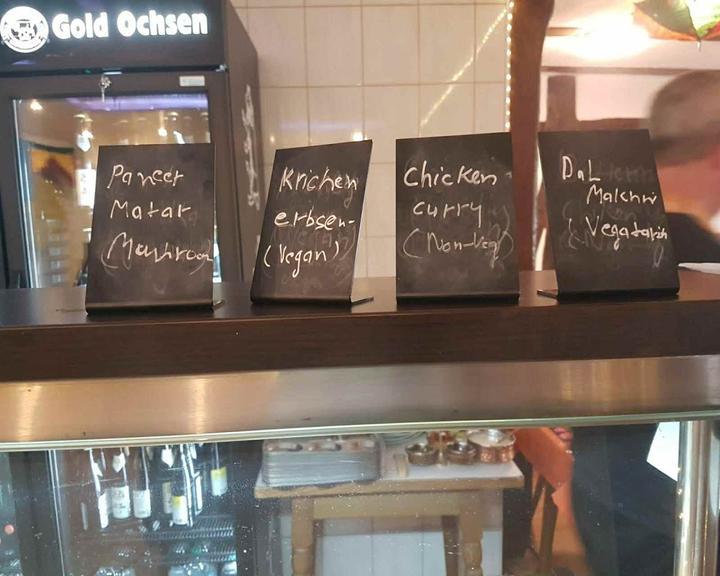 Gold Ochsen
Paneer
Matar
(Mashroom
Krichen
erbsen-
(Vegan)
Chicken
curry
(Non-Veg)
Dal
Makhni
(Vegatarish